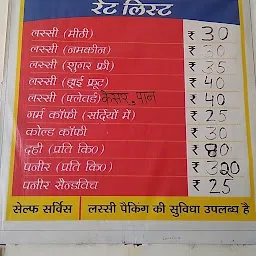 रेट लिस्ट
लस्सी (मीठी) ₹ 30
लस्सी (नमकीन) ₹ 30
लस्सी (सुगर फ्री) ₹ 35
लस्सी (ड्राई फ्रूट) ₹ 40
लस्सी (फ्लेवर्ड) केसर, पान ₹ 40
गर्म कॉफी (सर्दियों में) ₹ 25
कोल्ड कॉफी ₹ 30
दही (प्रति कि०) ₹ 80
पनीर (प्रति कि०) ₹ 320
पनीर सैन्डविच ₹ 25
सेल्फ सर्विस | लस्सी पैकिंग की सुविधा उपलब्ध है